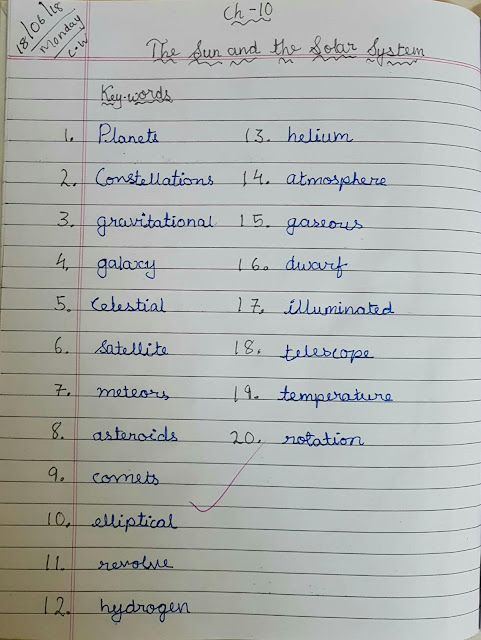 18/06/18
Monday
C.W
Ch-10
The Sun and the Solar System
Key-words
1. Planets
2. Constellations
3. gravitational
4. galaxy
5. Celestial
6. Satellite
7. meteors
8. asteroids
9. comets
10. elliptical
11. revolve
12. hydrogen
13. helium
14. atmosphere
15. gaseous
16. dwarf
17. illuminated
18. telescope
19. temperature
20. rotation